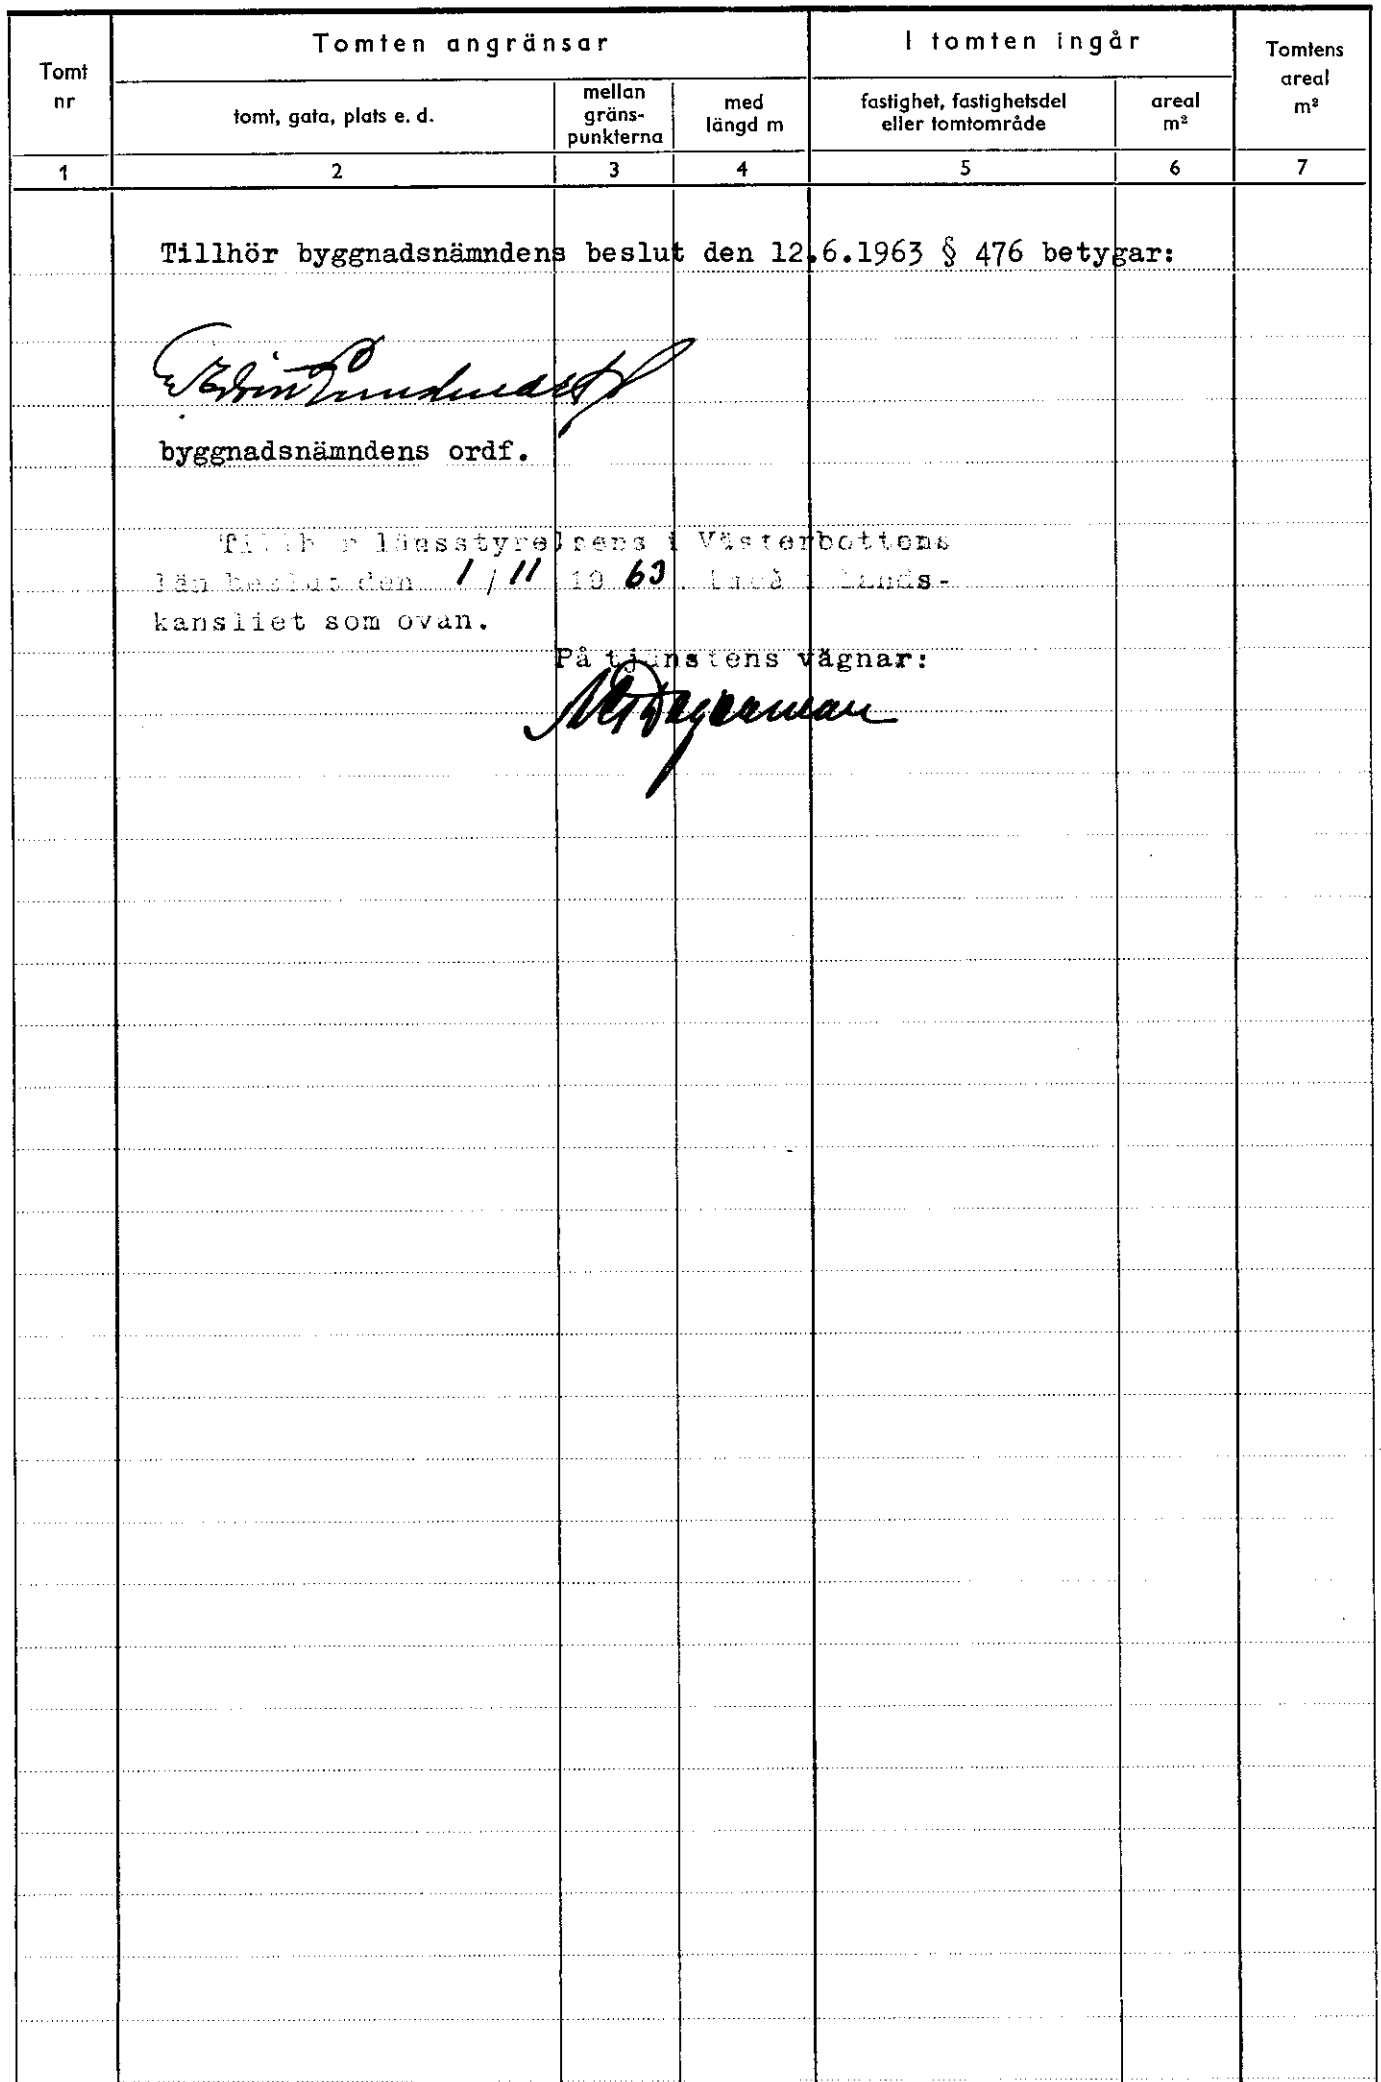 Tomt
nr
Tomten angränsar
I tomten ingår
Tomtens
areal
m²
tomt, gata, plats e. d.
mellan
gräns-
punkterna
med
längd m
fastighet, fastighetsdel
eller tomtområde
areal
m²
1 2 3 4 5 6 7
Tillhör byggnadsnämndens beslut den 12.6.1963 § 476 betygar:
byggnadsnämndens ordf.
Tillhör länsstyrelsens i Västerbottens
län beslut den 1/11 1963. Lands-
kansliet som ovan.
På tjänstens vägnar: